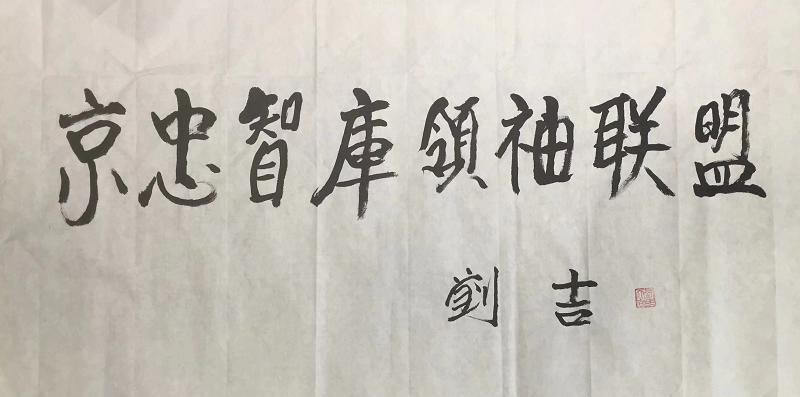 京忠智庫領袖联盟
劉吉